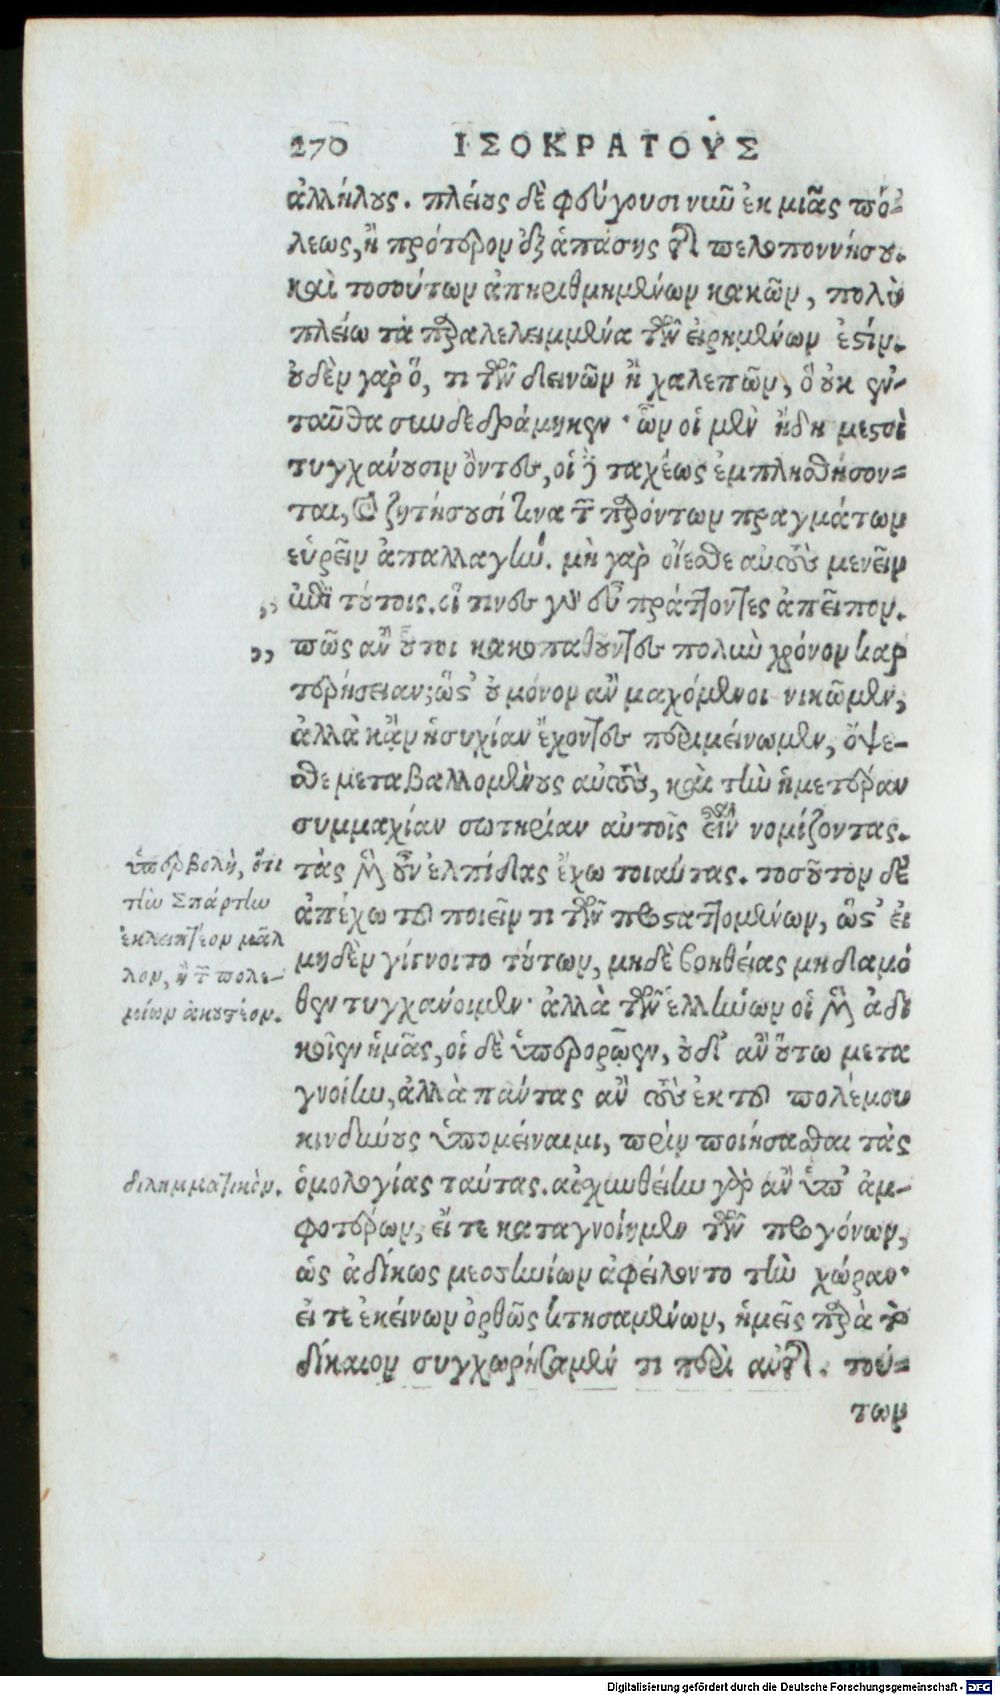 270 ΙΣΟΚΡΑΤΟΥΣ
ἀλλήλους. πλείους δὲ φεύγουσι νῦν ἐκ μιᾶς πό-
λεως, ἢ πρότερον ἐξ ἁπάσης τῆς πελοποννήσου.
καὶ τοσούτων ἀπηριθμημένων κακῶν, πολὺ
πλείω τὰ παραλελειμμένα τῶν εἰρημένων ἐστίν.
οὐδὲν γὰρ ὅ, τι τῶν δεινῶν ἢ χαλεπῶν, ὃ οὐκ ἐν-
ταῦθα συνδεδράμηκεν· ὧν οἱ μὲν ἤδη μεστοὶ
τυγχάνουσιν ὄντες, οἱ δὲ ταχέως ἐμπλησθήσον-
ται, καὶ ζητήσουσί τινα τῶν παρόντων πραγμάτων
εὑρεῖν ἀπαλλαγήν. μὴ γὰρ οἴεσθε αὐτοὺς μενεῖν
,, ἐπὶ τούτοις. οἵ τινες γὰρ εὖ πράττοντες ἀπεῖπον.
,, πῶς ἂν οὗτοι κακοπαθοῦντες πολὺν χρόνον καρ
τερήσειαν; ὥστ' οὐ μόνον ἂν μαχόμενοι νικῶμεν,
ἀλλὰ κἂν ἡσυχίαν ἔχοντες περιμείνωμεν, ὄψε-
σθε μεταβαλλομένους αὐτοὺς, καὶ τὴν ἡμετέραν
συμμαχίαν σωτηρίαν αὐτοῖς εἶναι νομίζοντας.
τὰς μὲν οὖν ἐλπίδας ἔχω τοιαύτας. τοσοῦτον δὲ
ἀπέχω τοῦ ποιεῖν τι τῶν προσταττομένων, ὥστ' εἰ
μηδὲν γίγνοιτο τούτων, μηδὲ βοηθείας μηδαμό
θεν τυγχάνοιμεν· ἀλλὰ τῶν ἑλλήνων οἱ μὲν ἀδι
κοῖεν ἡμᾶς, οἱ δὲ ὑπερορῷεν, οὐδ' ἂν οὕτω μετα
γνοίην, ἀλλὰ πάντας ἂν τοὺς ἐκ τοῦ πολέμου
κινδύνους ὑπομείναιμι, πρὶν ποιήσασθαι τὰς
ὁμολογίας ταύτας. αἰσχυνθείην γὰρ ἂν ὑπ' ἀμ-
φοτέρων, εἴ τε καταγνοίημεν τῶν προγόνων,
ὡς ἀδίκως μεσσηνίων ἀφείλοντο τὴν χώραν·
εἴ τε ἐκείνων ὀρθῶς κτησαμένων, ἡμεῖς παρὰ τὸ
δίκαιον συγχωρήσαμέν τι περὶ αὐτῆς. τού-
των
ὑπερβολὴ, ὅτι
τὴν Σπάρτην
ἐκλειπτέον μᾶλ
λον, ἢ τῶν πολε-
μίων ἀκουστέον.
διλημματικὸν.
Digitalisierung gefördert durch die Deutsche Forschungsgemeinschaft - DFG